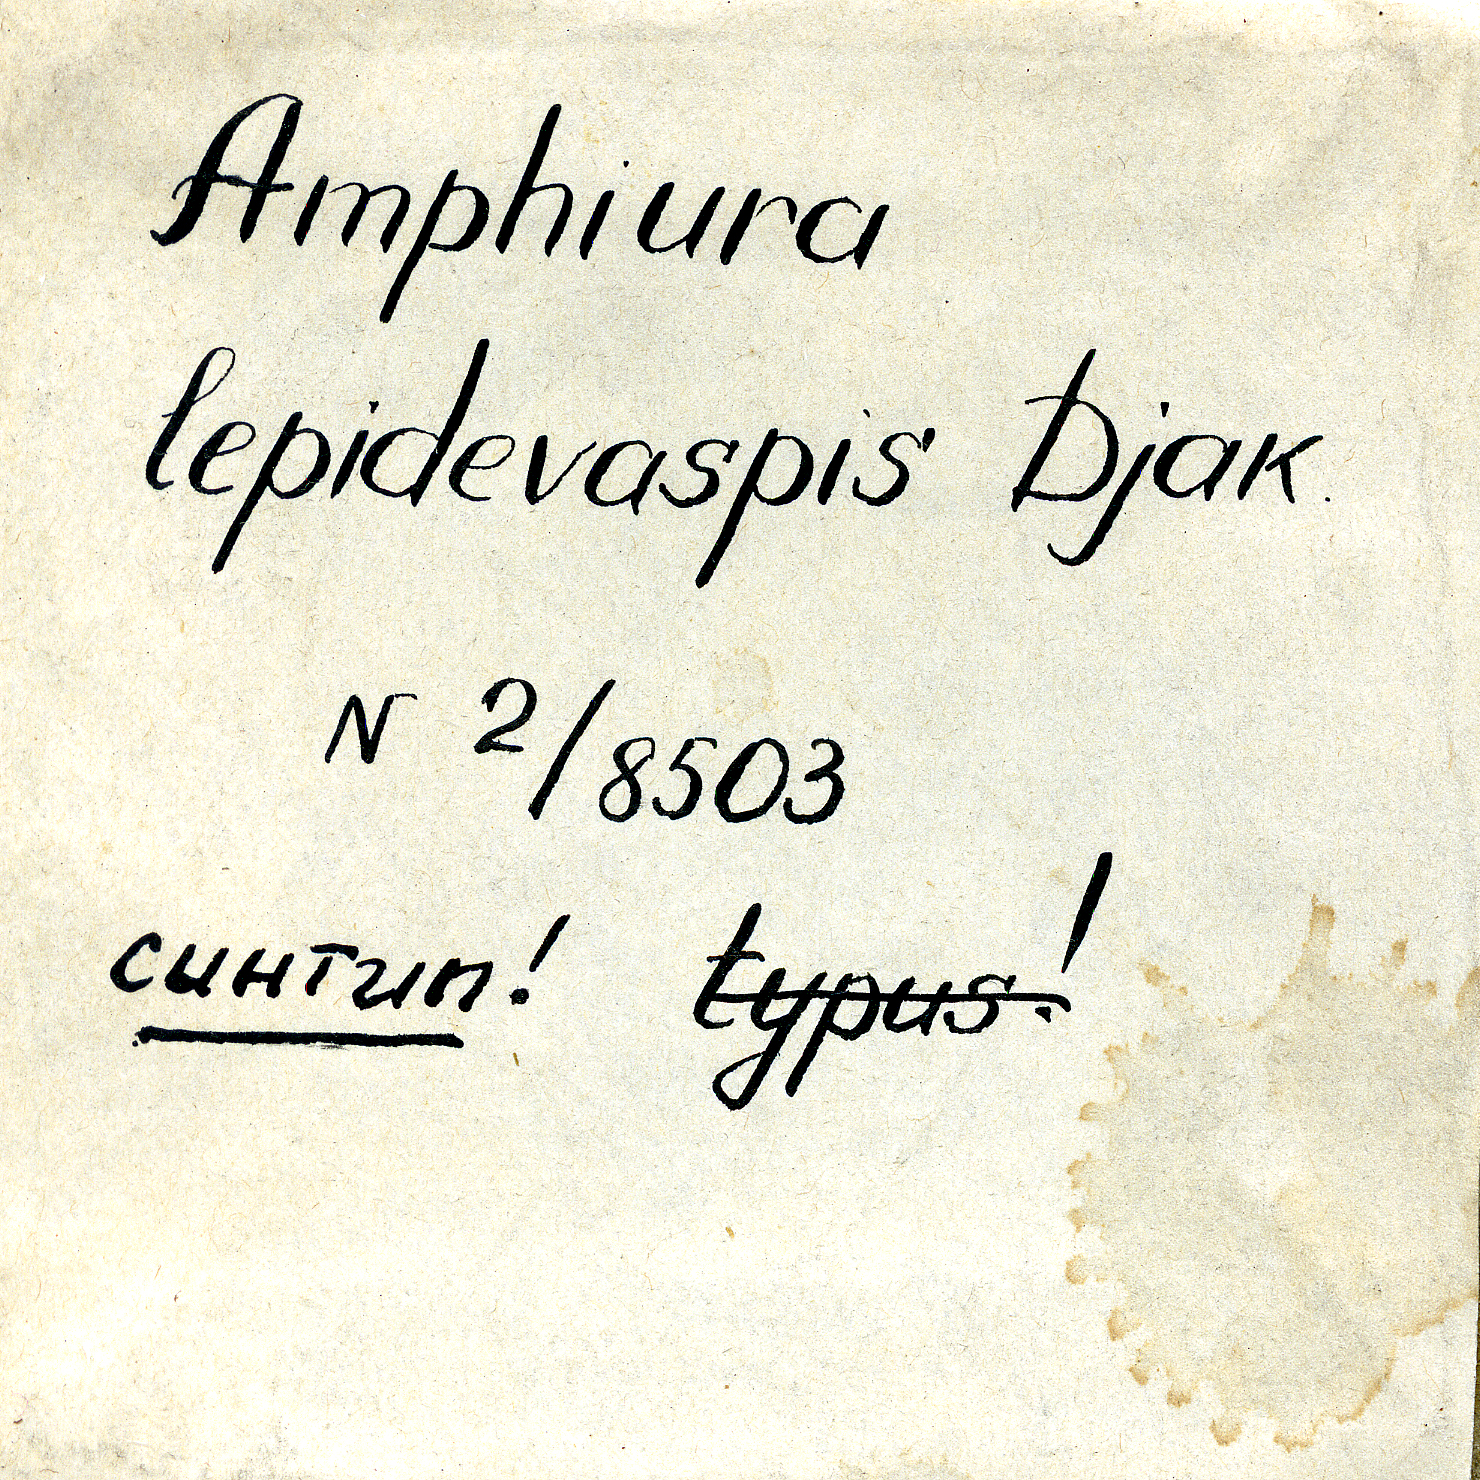 Amphiura
lepidevaspis Djak.
N 2/8503
синтип! typus!